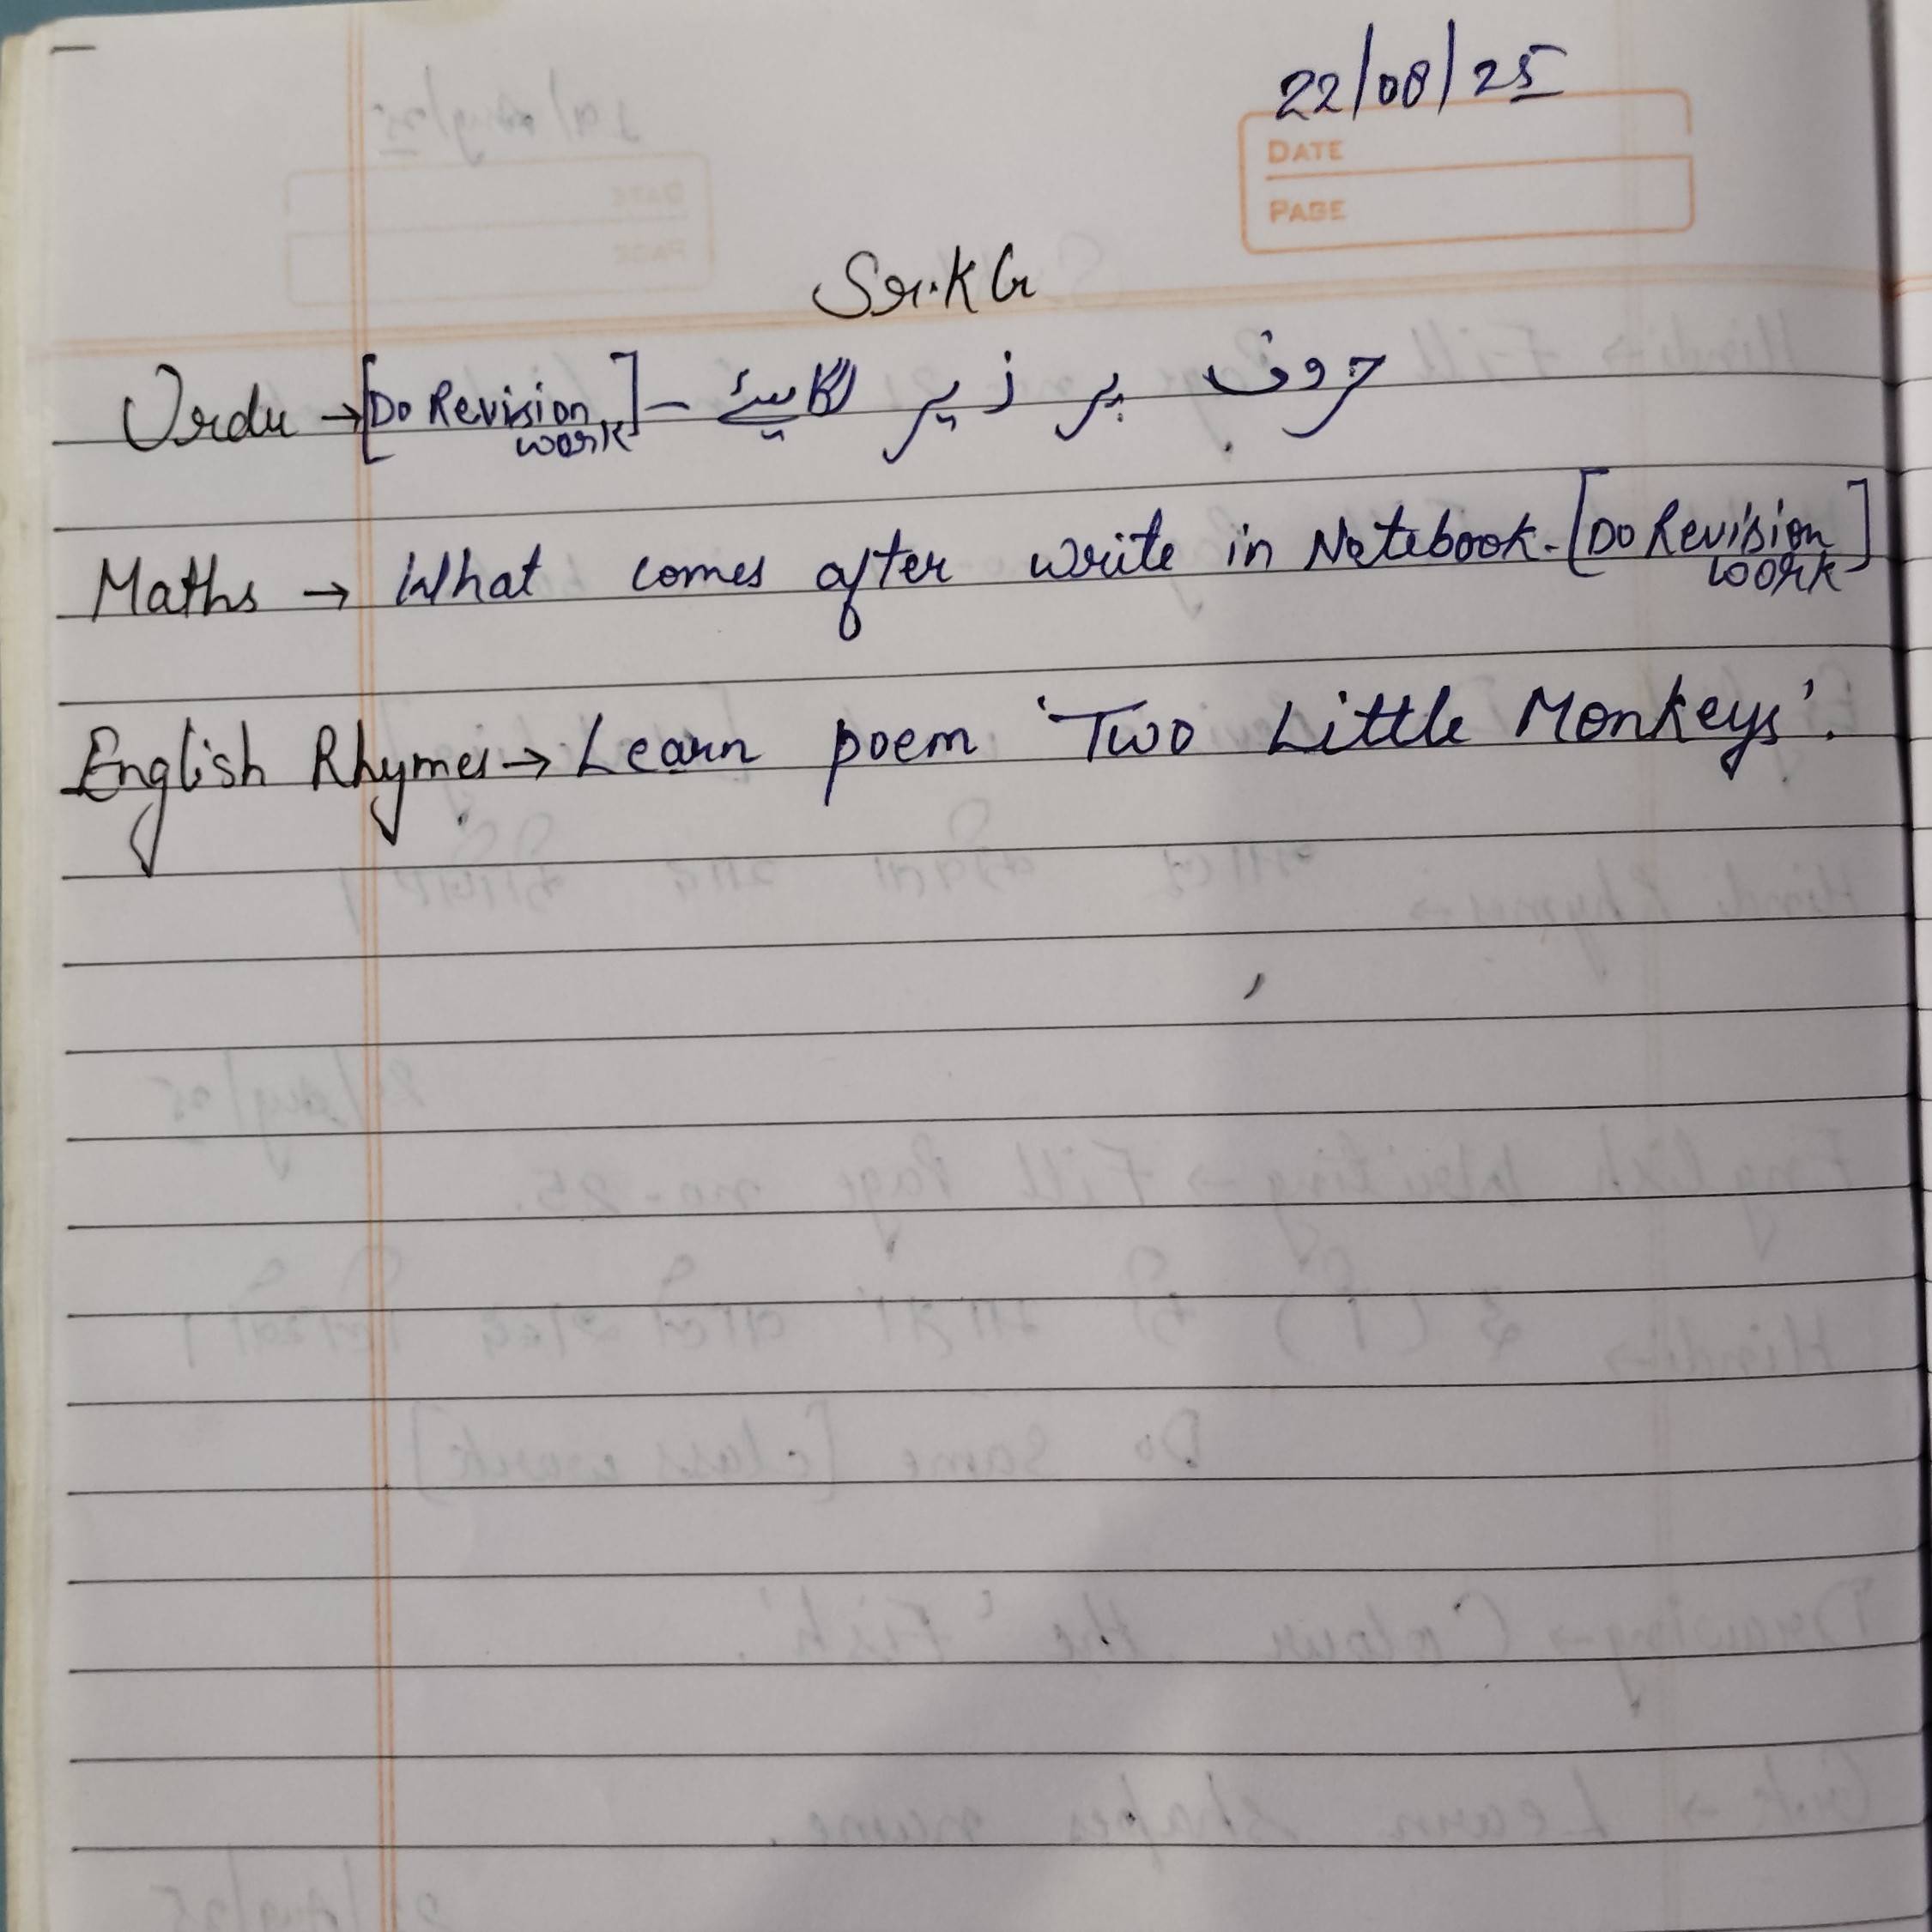 22/08/25
DATE
PAGE
Sr.KG
Urdu → [Do Revision work] - حروف پر زیر لگایئے
Maths → What comes after write in Notebook. [Do Revision work]
English Rhymes → Learn poem 'Two Little Monkeys'.